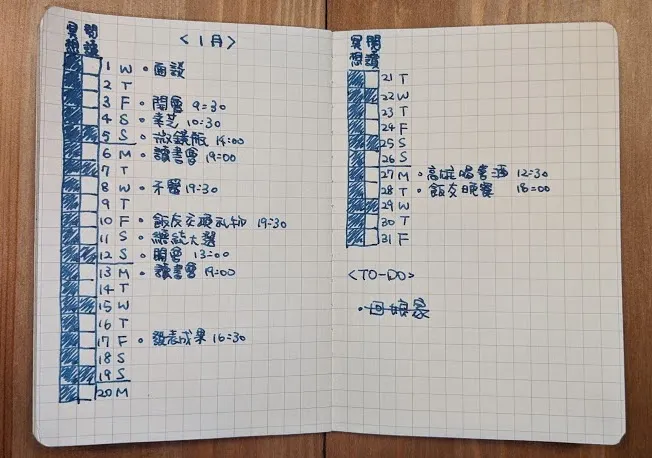 異閱
想讀
<1月>
1 W • 面談
2 T
3 F • 開會 9:30
4 S • 10:30
5 S • 微鏡飯 14:00
6 M • 讀書會 19:00
7 T
8 W • 19:30
9 T
10 F • 飯友交換礼物 19:30
11 S • 總統大選
12 S • 開會 13:00
13 M • 讀書會 19:00
14 T
15 W
16 T
17 F • 發表成果 16:30
18 S
19 S
20 M
異閱
想讀
21 T
22 W
23 T
24 F
25 S
26 S
27 M • 高雄喝喜酒 12:30
28 T • 飯友晚餐 18:00
29 W
30 T
31 F
<TO-DO>
• 回娘家